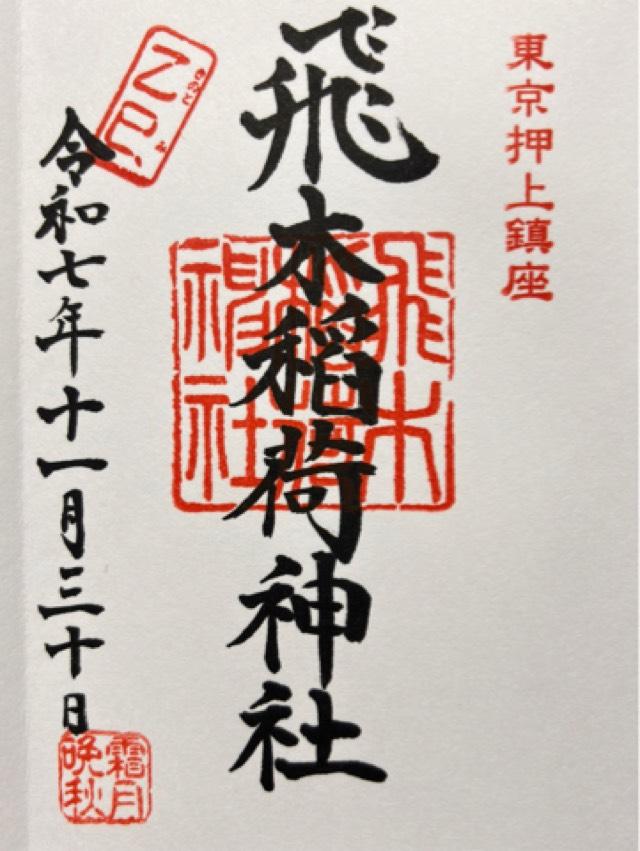 東京押上鎮座
飛木稲荷神社
飛木稲荷神社
乙巳
きのとみ
令和七年十一月三十日
霜月
晩秋